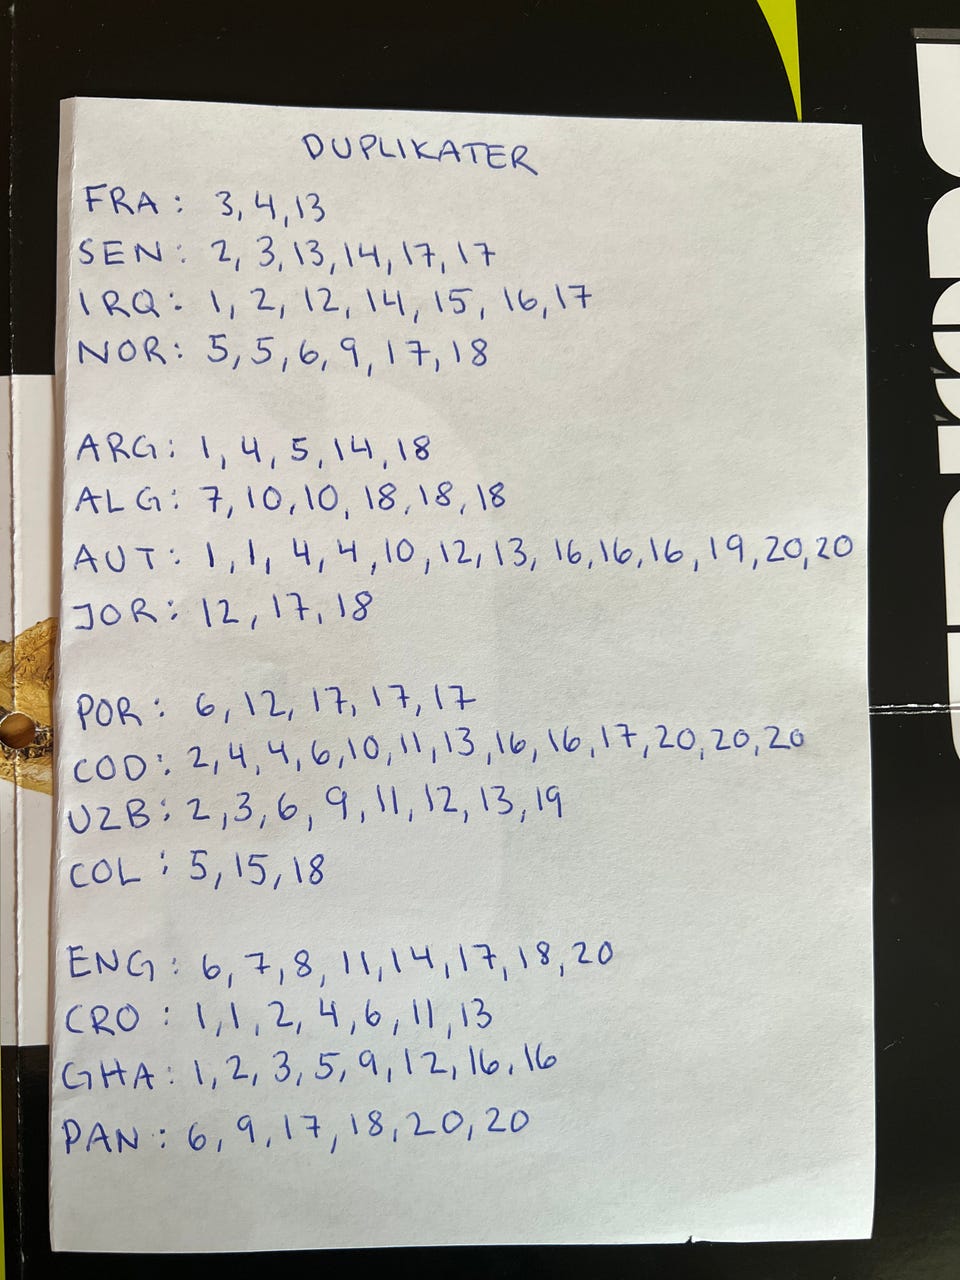 DUPLIKATER
FRA: 3, 4, 13
SEN: 2, 3, 13, 14, 17, 17
IRQ: 1, 2, 12, 14, 15, 16, 17
NOR: 5, 5, 6, 9, 17, 18
ARG: 1, 4, 5, 14, 18
ALG: 7, 10, 10, 18, 18, 18
AUT: 1, 1, 4, 4, 10, 12, 13, 16, 16, 16, 19, 20, 20
JOR: 12, 17, 18
POR: 6, 12, 17, 17, 17
COD: 2, 4, 4, 6, 10, 11, 13, 16, 16, 17, 20, 20, 20
UZB: 2, 3, 6, 9, 11, 12, 13, 19
COL: 5, 15, 18
ENG: 6, 7, 8, 11, 14, 17, 18, 20
CRO: 1, 1, 2, 4, 6, 11, 13
GHA: 1, 2, 3, 5, 9, 12, 16, 16
PAN: 6, 9, 17, 18, 20, 20